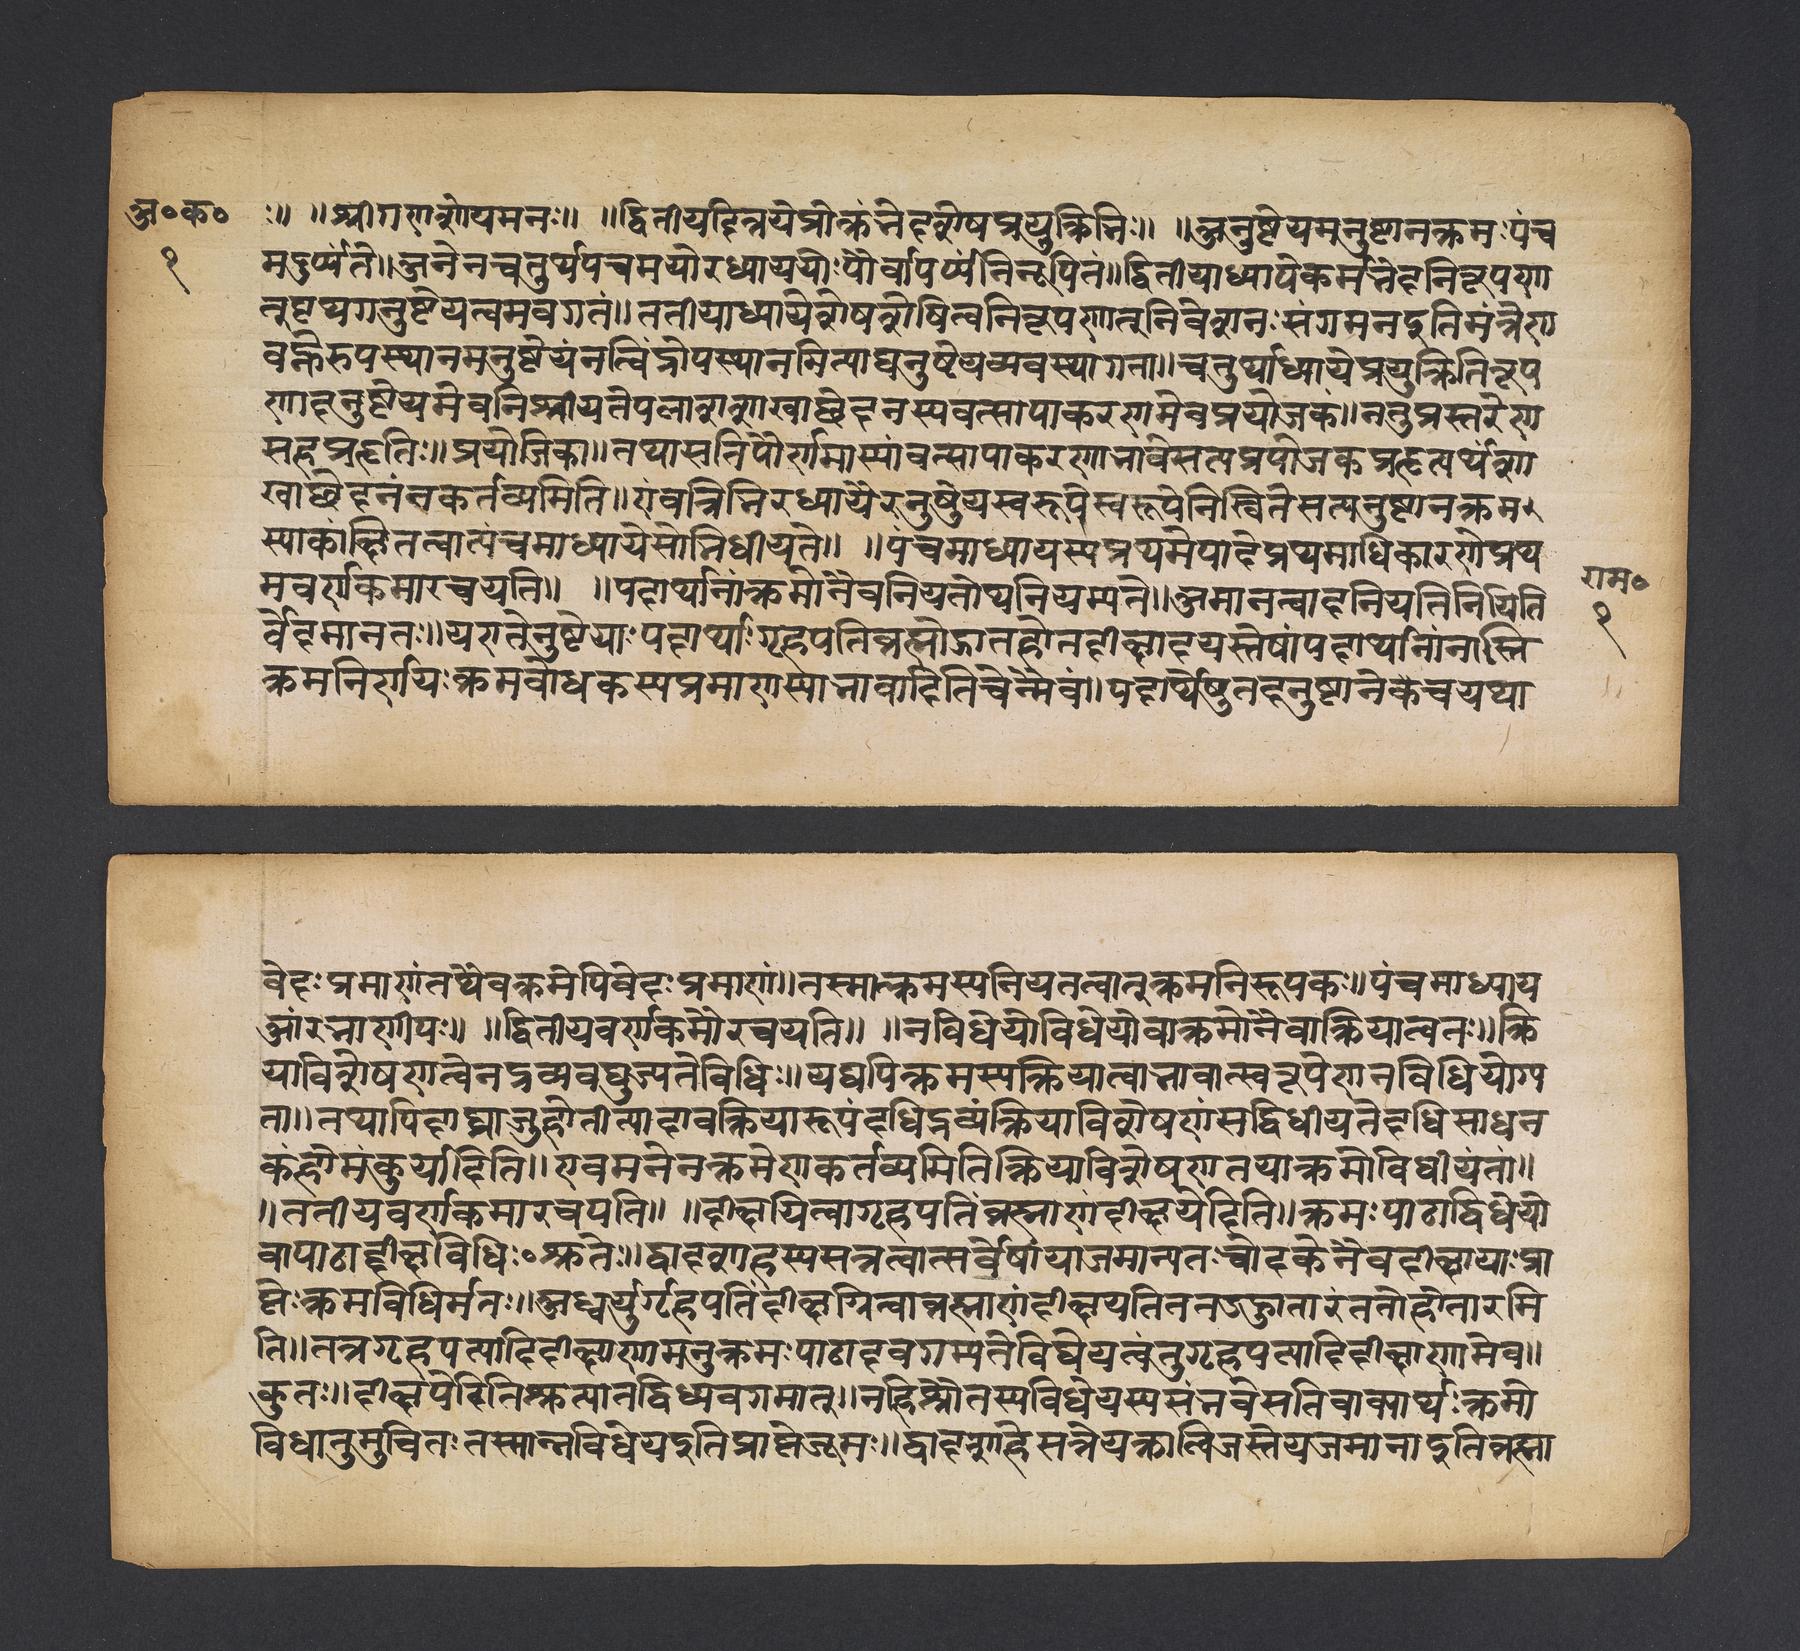 अ॰क॰ ः॥ ॥श्रीगणेशायमनः॥ ॥द्वितीयदित्रयेप्रोक्तंभेदशेषप्रयुक्तिभिः॥ ॥अनुष्टेयमनुष्टानक्रमःपंच
१ मउर्प्यते॥अनेनचतुर्थपंचमयोरध्याययोःपौर्वापर्प्यंनिरूपितं॥द्वितीयाध्यायेकर्मभेदनिरूपणा
त्पृष्टथगनुष्टेयत्वमवगतं॥ततीयाध्यायेशेषशेषित्वनिरूपणात्निवेशनःसंगमनइतिमंत्रेण
वह्नेरुपस्थानमनुष्टेयंनत्विंद्रोपस्थानमित्याद्यनुष्टेयव्यवस्थागता॥चतुर्थाध्यायेप्रयुक्तिनिरूप
णादनुष्टेयमेवनिश्चीयतेपलाशशाखाछेदनस्यवत्सापाकरणमेवप्रयोजकं॥नतुप्रस्तरेण
सहप्रहृतिः॥प्रयोजिका॥तथासतिपौर्णमास्यांवत्सापाकरणाभांवेसत्यप्रयोजकप्रहृत्यर्थंशा
खाछेदनंनकर्तव्यमिति॥एवंत्रिभिरध्यायैरनुष्ठेयस्वरूपेस्वरूपेनिश्चितेसत्यनुष्टानक्रम१
स्याकांक्षितत्वात्पंचमाध्यायेसोभिधीयते॥ ॥पंचमाध्यायस्यप्रथमेपादेप्रथमाधिकारणेप्रथ
मवर्णकमारचयति॥ ॥पदार्थानांक्रमोनैवनियतोथनियम्यते॥अमानत्वादनियतिर्नियति
र्वेदमानतः॥यएतेनुष्टेयाःपदार्थाःगृहपतिब्रह्मोद्गातहोतदीक्षादयस्तेषांपदार्थानांनास्ति
क्रमनिर्णयःक्रमबोधकस्यप्रमाणस्याभावादितिचेन्मैवं॥पदार्थेषुतदनुष्टानेकेचयथा
राम॰
१
वेदःप्रमाणंतथैवक्रमेपिवेदःप्रमाणं॥तस्मात्क्रमस्यनियतत्वात्क्रमनिरूपकः॥पंचमाध्याय
आंरभाणीयः॥ ॥द्वितीयवर्णकमारचयति॥ ॥नविधेयोविधेयोवाक्रमोनैवाक्रियात्वतः॥क्रि
याविशेषणत्वेनद्रव्यवद्युज्यतेविधिः॥यद्यपिक्रमस्यक्रियात्वाभावात्स्वरूपेणनविधियोग्य
ता॥तथापिदध्नाजुहोतीत्यादावक्रियारूपंदधिद्रव्यंक्रियाविशेषणंसद्विधीयतेदधिसाधन
कंहोमंकुर्यादिति॥एवमनेनक्रमेणकर्तव्यमितिक्रियाविशेषणतयाक्रमोविधीयंतां॥
॥ततीयवर्णकमारचयति॥ ॥दीक्षयित्वागृहपतिंब्रह्माणंदीक्षयेदिति॥क्रमःपाठाद्विधेयो
वापाठाद्दीक्षविधिः॰श्रुतेः॥द्वादशाहस्यसत्रत्वात्सर्वेषांयाजमान्यतःचोदकेनैवदीक्षायाःप्रा
प्तेःक्रमविधिर्मतः॥अध्वर्युर्गृहपतिंदीक्षयित्वाब्रह्माणंदीक्षयतिततउद्गातारंततोहोतारमि
ति॥तत्रगृहपत्यादिदीक्षाणामनुक्रमःपाठादवगम्यतेविधेयत्वंतुगृहपत्यादिदीक्षाणामेव॥
कुतः॥दीक्षयेदितिश्रुत्यातद्विध्यवगमात्॥नहिश्रौतस्यविधेयस्यसंभवेसतिवाक्यार्थःक्रमो
विधातुमुचितःतस्मान्नविधेयइतिप्राप्तेब्रूमः॥द्वादशाहेसत्रेयऋत्विजस्तेयजमानाइतिब्रह्मा